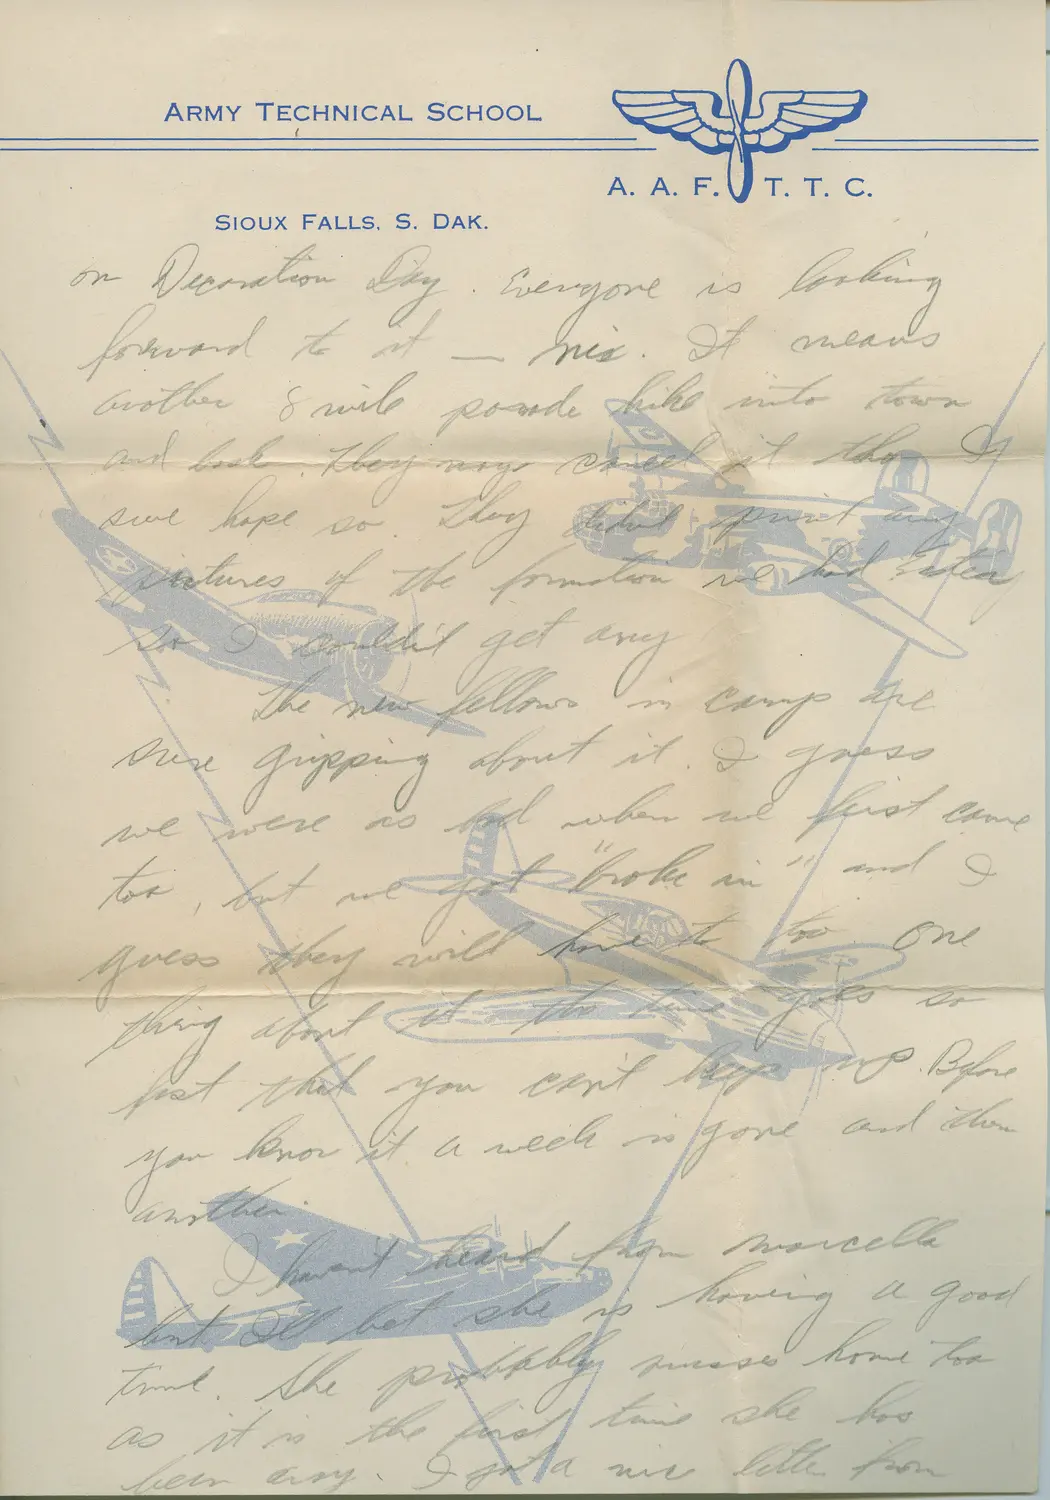 ARMY TECHNICAL SCHOOL
A. A. F. T. T. C.
SIOUX FALLS, S. DAK.
on Decoration Day. Everyone is looking
forward to it — nix. It means
another 8 mile parade hike into town
and back. They may cancel it tho I
sure hope so. They didnt print any
pictures of the formation we had Easter
so I couldn't get any
The new fellows in camp are
sure gripping about it. I guess
we were as bad when we first came
too, but we got "broke in" and I
guess they will have to too. One
thing about it the time goes so
fast that you can't keep up. Before
you know it a week is gone and then
another.
I havent heard from Marcella
but I'll bet she is having a good
time. She probably misses home too
as it is the first time she has
been away. I got a nice letter from